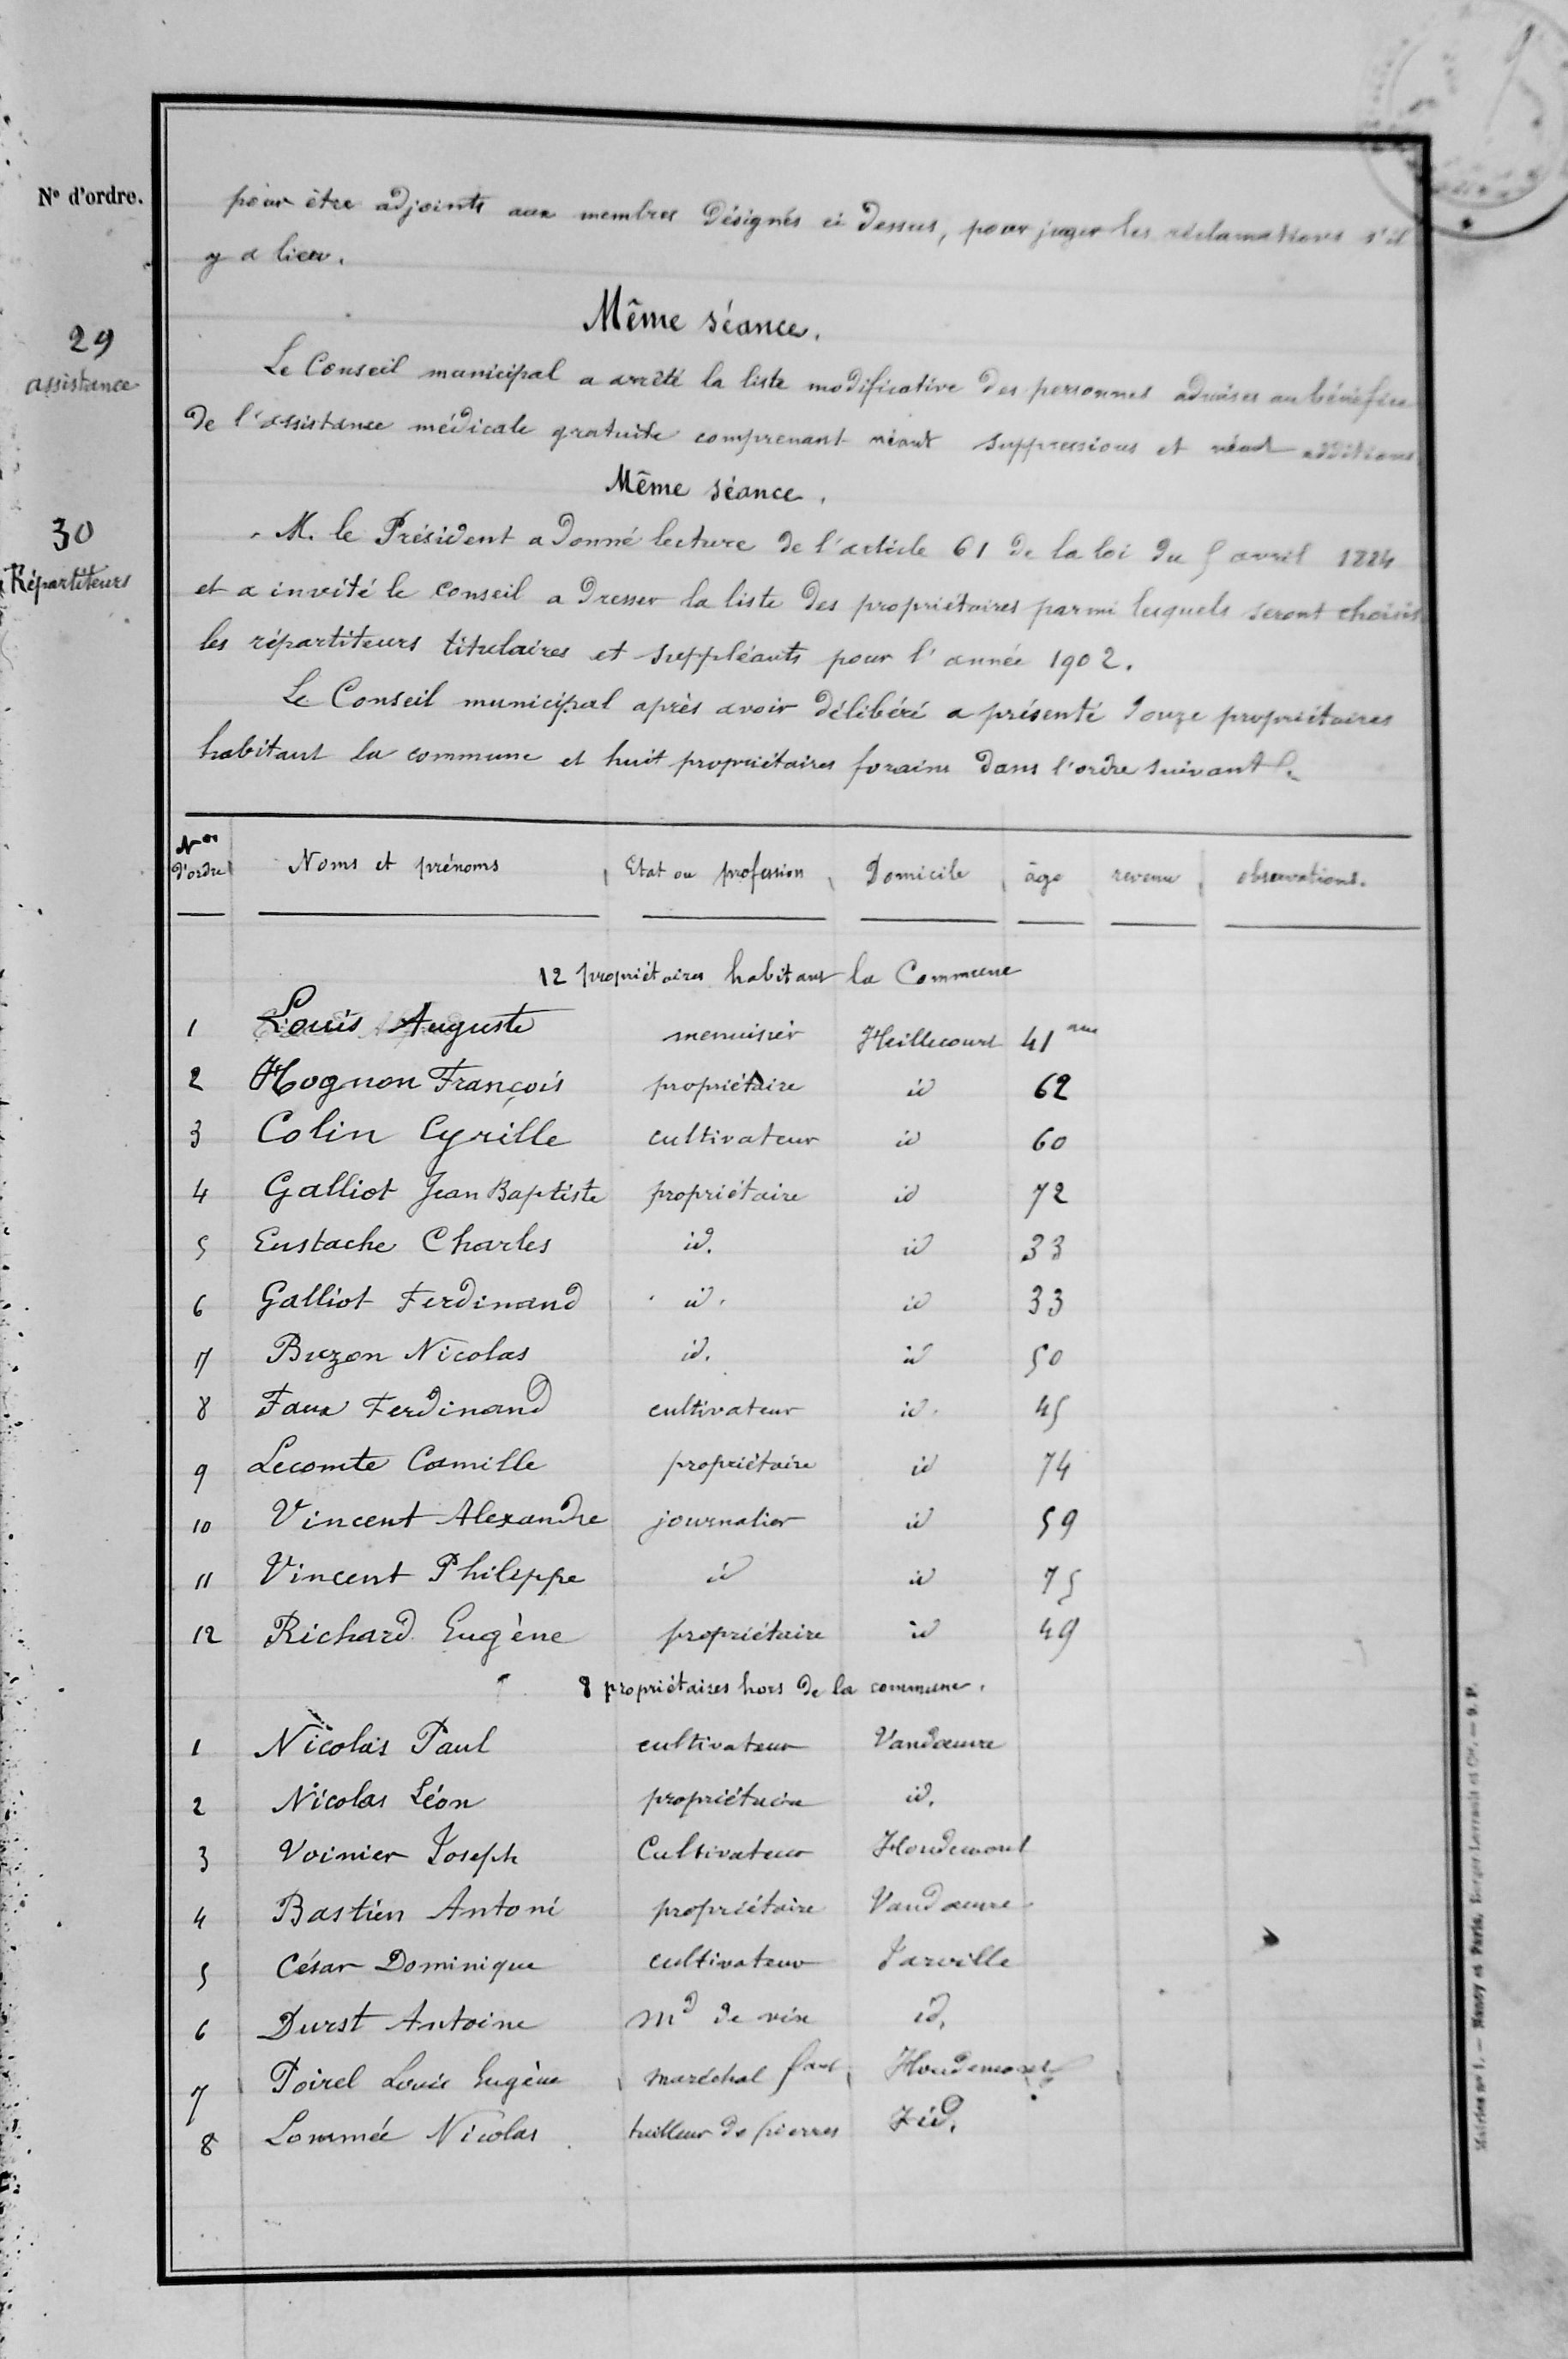 N° d'ordre.
pour être adjoints aux membres désignés ci dessus, pour juger les réclamations s'il
y a lieu.
Même séance.
29
assistance
Le Conseil municipal a arrêté la liste modificative des personnes admises au bénéfice
de l'assistance médicale gratuite comprenant néant suppressions et néant additions
Même séance.
30
Répartiteurs
M. le Président a donné lecture de l'article 61 de la loi du 5 avril 1884
et a invité le conseil a dresser la liste des propriétaires parmi lesquels seront choisis
les répartiteurs titulaires et suppléants pour l'année 1902.
Le Conseil municipal après avoir délibéré a présenté douze propriétaires
habitant la commune et huit propriétaires forains dans l'ordre suivant.
Nos d'ordre Noms et prénoms Etat ou profession Domicile âge revenu observations.
12 propriétaires habitant la Commune
1 Louis Auguste menuisier Heillecourt 41 ans
2 Hognon François propriétaire id 62
3 Colin Cyrille cultivateur id 60
4 Galliot Jean Baptiste propriétaire id 72
5 Eustache Charles id. id 33
6 Galliot Ferdinand id. id 33
7 Buzon Nicolas id. id 50
8 Faux Ferdinand cultivateur id. 45
9 Lecomte Camille propriétaire id 74
10 Vincent Alexandre journalier id 59
11 Vincent Philippe id id 75
12 Richard Eugène propriétaire id 49
8 propriétaires hors de la commune.
1 Nicolas Paul cultivateur Vandœuvre
2 Nicolas Léon propriétaire id.
3 Voinier Joseph Cultivateur Houdemont
4 Bastien Antoni propriétaire Vandœuvre
5 César Dominique cultivateur Jarville
6 Durst Antoine Md de vin id.
7 Poirel Louis Eugène maréchal fant Houdemont
8 Lommée Nicolas tailleur de pierres id.
Mairies n° 1. — Nancy et Paris, Berger-Levrault et Cie. — 9. P.